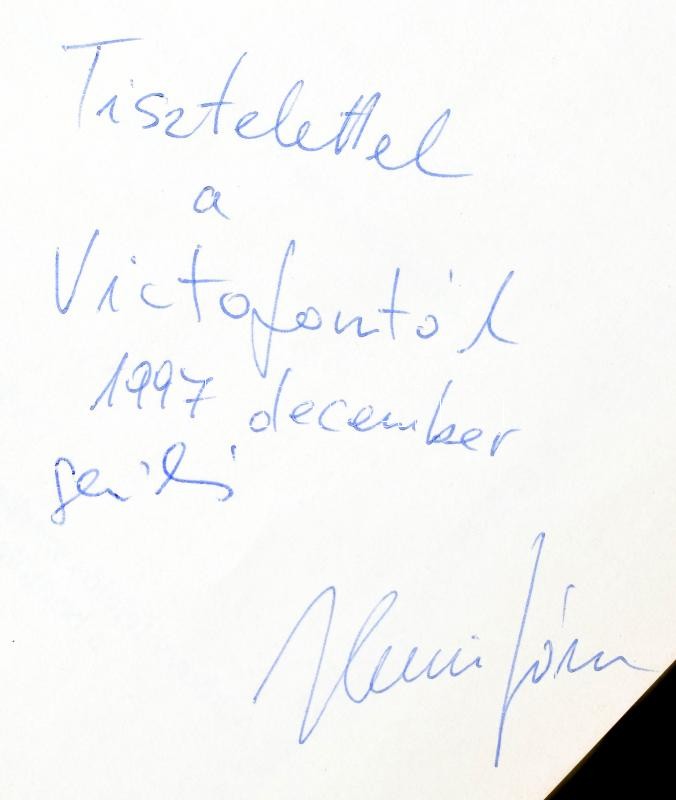 Tisztelettel
a
Victofontól
1997 december